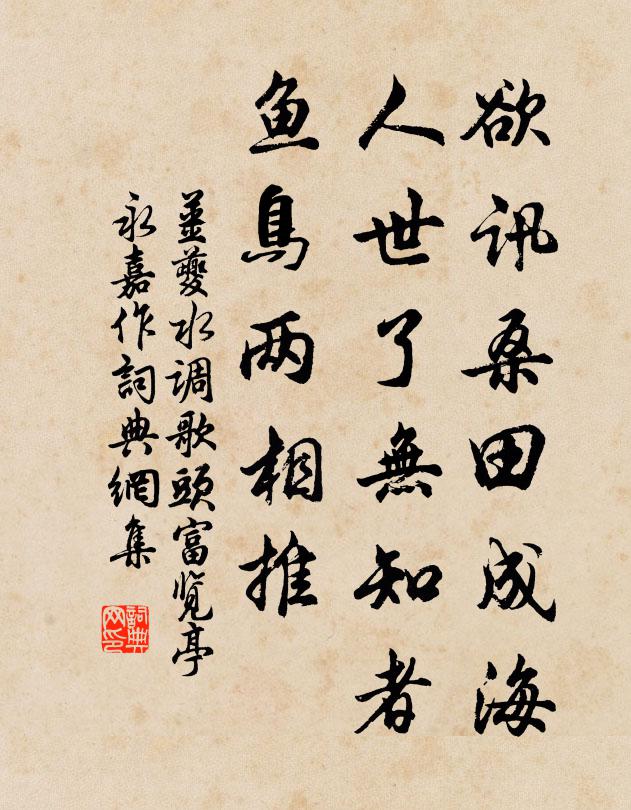 欲讯桑田成海
人世了無知者
鱼鳥两相推
姜夔水调歌頭富览亭
永嘉作詞典網集
詞典
网印